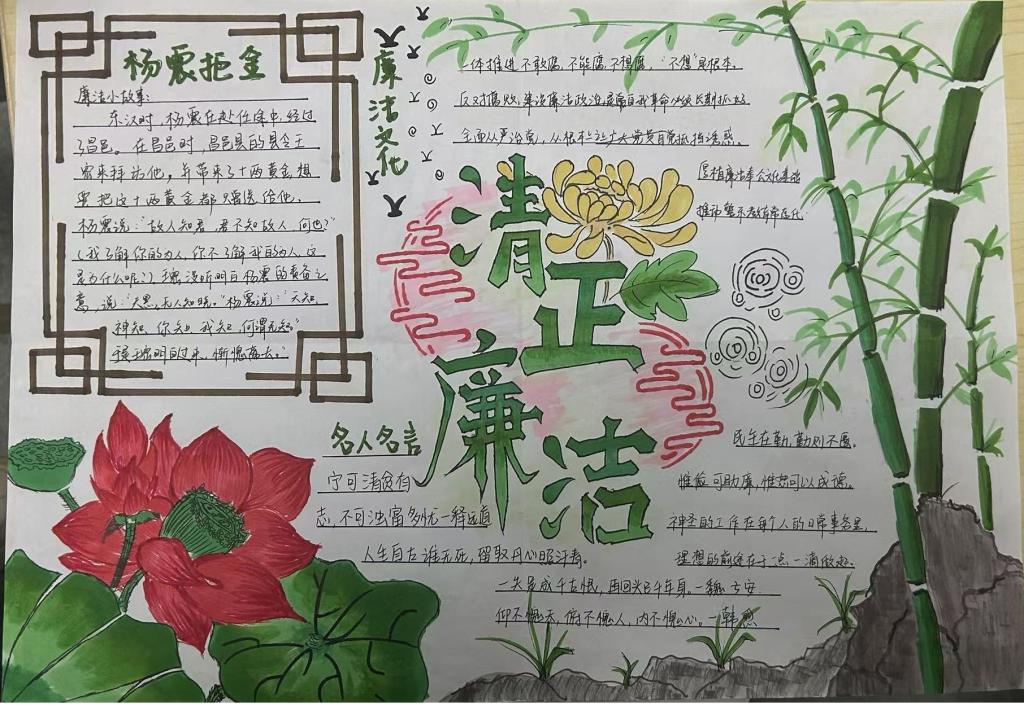 杨震拒金
廉洁小故事:
东汉时,杨震在赴任途中,经过
了昌邑。在昌邑时,昌邑县的县令王
密来拜访他,并带来了十两黄金,想
要把这十两黄金都赠送给他,
杨震说:"故人知君,君不知故人,何也?"
(我了解你的为人,你不了解我的为人,这
是为什么呢?)
没听明白杨震的责备之
意,说:"天黑,无人知晓。"杨震说:"天知,
神知,你知,我知,何谓无知"
明白过来,惭愧离去。
廉洁文化
一体推进不敢腐,不能腐,不想腐,"不想"是根本.
反对腐败,建设廉洁政治,是
自我革命
长期抓好
全面从严治党,从根本上让
党员自觉抵挡诱惑.
厚植廉洁奉公文化基础
推动
清正廉洁
名人名言
宁可清贫自
志,不可浊富多忧一释远直
人生自古谁无死,留取丹心照汗青。
一失足成千古恨,再回头已千年身.一魏子安
仰不愧天,俯不愧人,内不愧心。一韩愈
民生在勤,勤则不匮。
惟俭可助廉,惟恕可以成德。
神圣的工作在每个人的日常事务里,
理想的前途在于一点一滴做起.